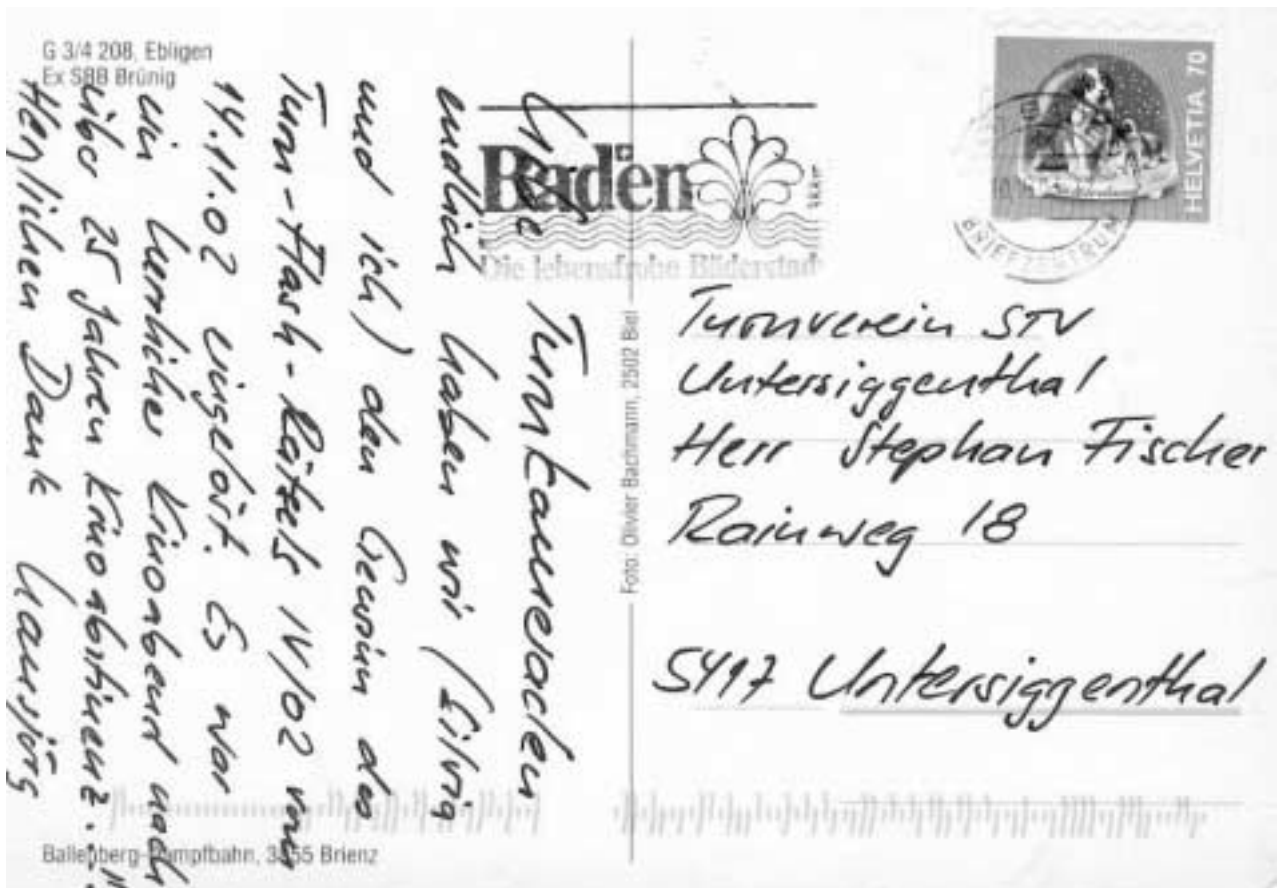 G 3/4 208, Ebligen
Ex SBB Brünig
Liebe Turnkameraden
endlich haben wir (Silvia
und ich) den Gewinn des
Turn-Flash-Rätsels IV/02 vom
14.11.02 eingelöst. Es war
ein herrlicher Kinoabend nach
über 25 Jahren Kinoabstinenz..."
Herzlichen Dank Hansjörg
Ballenberg-Dampfbahn, 3855 Brienz
Foto: Olivier Bachmann, 2502 Biel
Baden
Die lebensfrohe Bäderstadt
HELVETIA 70
BRIEFZENTRUM
Turnverein STV
Untersiggenthal
Herr Stephan Fischer
Rainweg 18
5417 Untersiggenthal